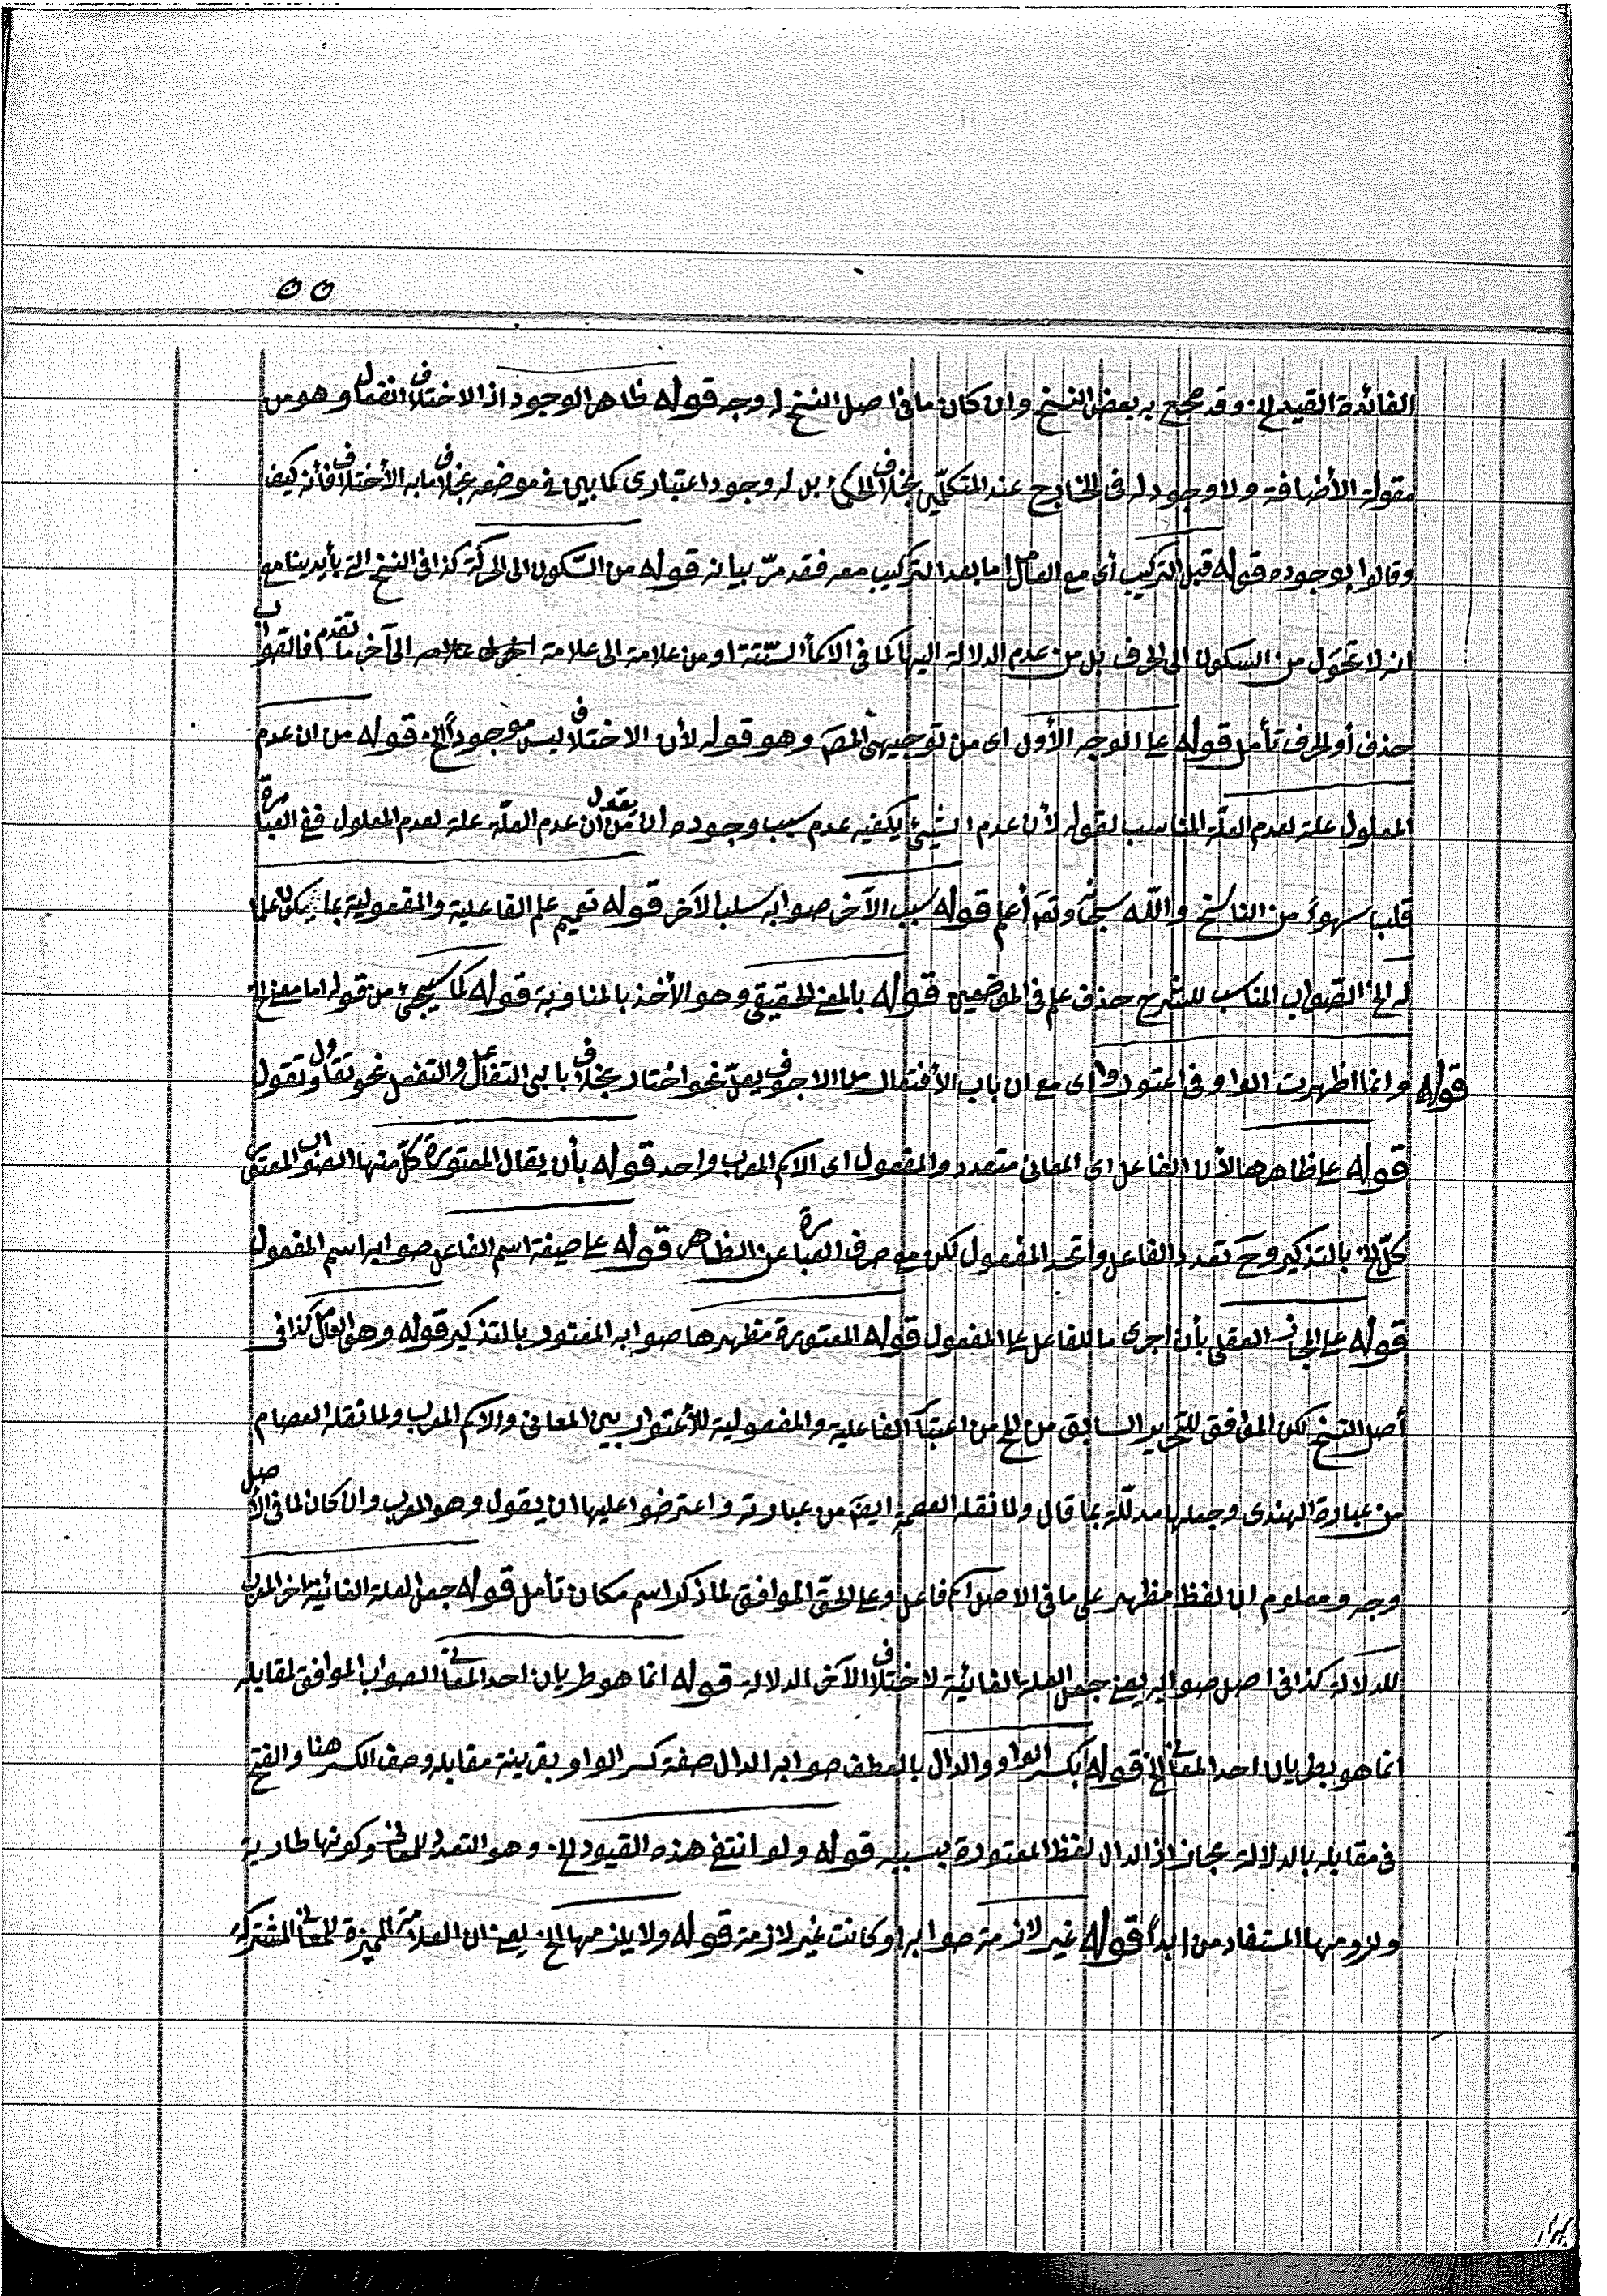 ٥٥
الفائدة القيد الخ وقد صحح به بعض النسخ وان كان ما فى اصل النسخ له وجه قوله ظاهر الوجود اذ الاختلاف انفعال وهو من
مقولة الأضافة ولا وجود له فى الخارج عند المتكلمين بخلاف الحكمى بل له وجود اعتبارى كما بين فى موضعه بخلاف ما به الأختلاف فأنه كيف
وقالوا بوجوده قوله قبل التركيب أى مع العامل اما بعد التركيب معه فقد مرّ بيانه قوله من السّكون الى الحركة كذا فى النسخ التى بأيدينا مع
انه لا تحوّل من السكون الى الحرف بل من عدم الدلالة اليها كما فى الاسماء الستة او من علامة الى علامة الى آخر ما تقدم فالصواب
حذف أو الحرف تأمل قوله على الوجه الأول اى من توجيهى المصـ وهو قوله لأن الاختلاف ليس موجوداً الخ قوله من ان عدم
المعلول علة لعدم العلّة المناسب لقوله لأن عدم الشيئ يكفيه عدم سبب وجوده ان يقول من أن عدم العلّة علة لعدم المعلول ففى العبارة
قلب سهواً من الناسخ والله سبحانه وتعـ أعلم قوله سبب الآخر صوابه سلب الآخر قوله تعميم علم الفاعلية والمفعولية بما يكون علما
له الخ الصّواب المناسب للشرح حذف علم فى الموضعين قوله بالمعنى الحقيقى وهو الأخذ بالمناوبة قوله كما سيجئ من قوله اما معنى الخ
قوله وانما اظهرت الواو فى اعتوروا اى مع ان باب الأفتعال من الاجوف يعلّ نحو اختار بخلاف بابى التفاعل والتفعل نحو تقاول وتقول
قوله على ظاهرها لأن الفاعل اى المعانى متعدد والمفعول اى الاسم المعرب واحد قوله بأن يقال المعتورة كلّ منها الصواب المعتور
كلّ الخ بالتذكير وحـ تعدد الفاعل واتحد المفعول لكن مع صرف العبارة عن الظاهر قوله على صيغة اسم الفاعل صوابه اسم المفعول
قوله على المجاز العقلى بأن اجرى ما للفاعل على المفعول قوله المعتورة مظهرها صوابه المعتور بالتذكير قوله وهى العامل كذا فى
أصل النسخ لكن الموافق للتحرير السابق من الخ من اعتبار الفاعلية والمفعولية للأعتوار بين المعانى والاسم المعرب ولما نقله العصام
من عبارة الهندى وجعلها مدلّلة بما قال ولما نقله العصمة ايضـ من عبارته واعترضوا عليها ان يقول وهو المعرب وان كان لما فى الأصل
وجه ومعلوم ان لفظ مظهر على ما فى الاصل اسم فاعل وعلى الحقّ الموافق لما ذكر اسم مكان تأمل قوله جعل العلة الغائية اخر المعرب
للدلالة كذا فى اصل صوابه يعنى جعل العلة الغائية لاختلاف الآخر الدلالة قوله انما هو طريان احد المعانى الصواب الموافق لمقابله
انما هو بطريان احد المعانى الخ قوله بكسر الواو والدال بالعطف صوابه الدال صفة كسر الواو بقرينة مقابله وصف الكسر هنا والفتح
فى مقابله بالدلالة مجاز اذ الدال لفظ المعتورة بسببه قوله ولو انتفى هذه القيود الخ وهو التعدد للمعانى وكونها طارية
ولزومها المستفاد من ابداً قوله غير لازمة صوابه او كانت غير لازمة قوله ولا يلزمها الخ يعنى ان العلامة المميزة للمعانى المشتركة